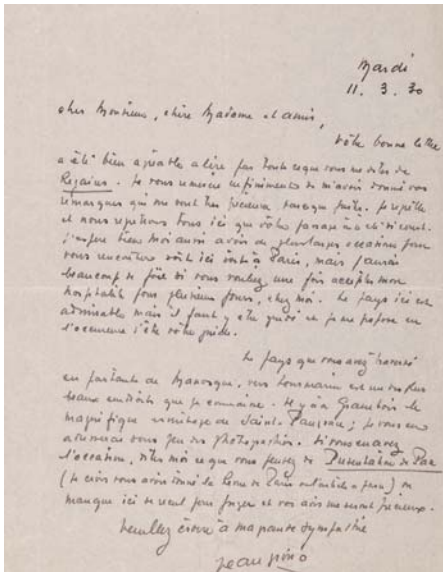 Mardi
11. 3. 30
cher Monsieur, chère Madame et amis,
Votre bonne lettre
a été bien agréable a lire par toute ce que vous me dites de
Regain. Je vous remercie infiniment de m'avoir donné vos
remarques qui me sont très précieuses. Je répète
et nous repetons tous ici que votre passage a été si court.
J'espère bien moi aussi avoir de plus larges occasions pour
vous rencontrer soit ici soit à Paris, mais j'aurai
beaucoup de joie si vous voulez une fois accepter mon
hospitalité pour plusieurs jours, chez moi. Le pays ici est
admirable mais il faut y être guidé et je me propose en
l'occurence d'être votre guide.
Le pays que vous avez traversé
en partant de Manosque, vers Lourmarin est un des plus
beaux endroits que je connaisse. Il y a à Grambois le
magnifique ermitage de Saint Pancrace; je vous en
enverrai sous peu des photographies. Si vous en avez
l'occasion, dites moi ce que vous pensez de Présentation de Pan
(je crois vous avoir donné la Revue de Paris où l'article a paru) on
manque ici de recul pour juger et vos avis me seront précieux.
Veuillez croire à ma grande sympathie
Jean Giono